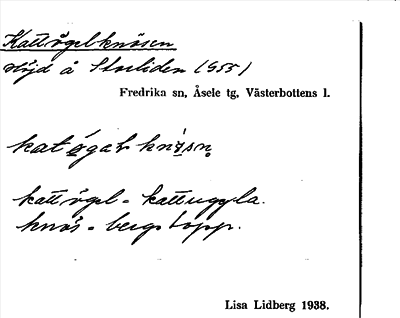 Kattögelknösen
Höjd å Storliden (955)
Fredrika sn, Åsele tg, Västerbottens l.
kattögel = kattuggla.
knös = bergstopp.
Lisa Lidberg 1938.